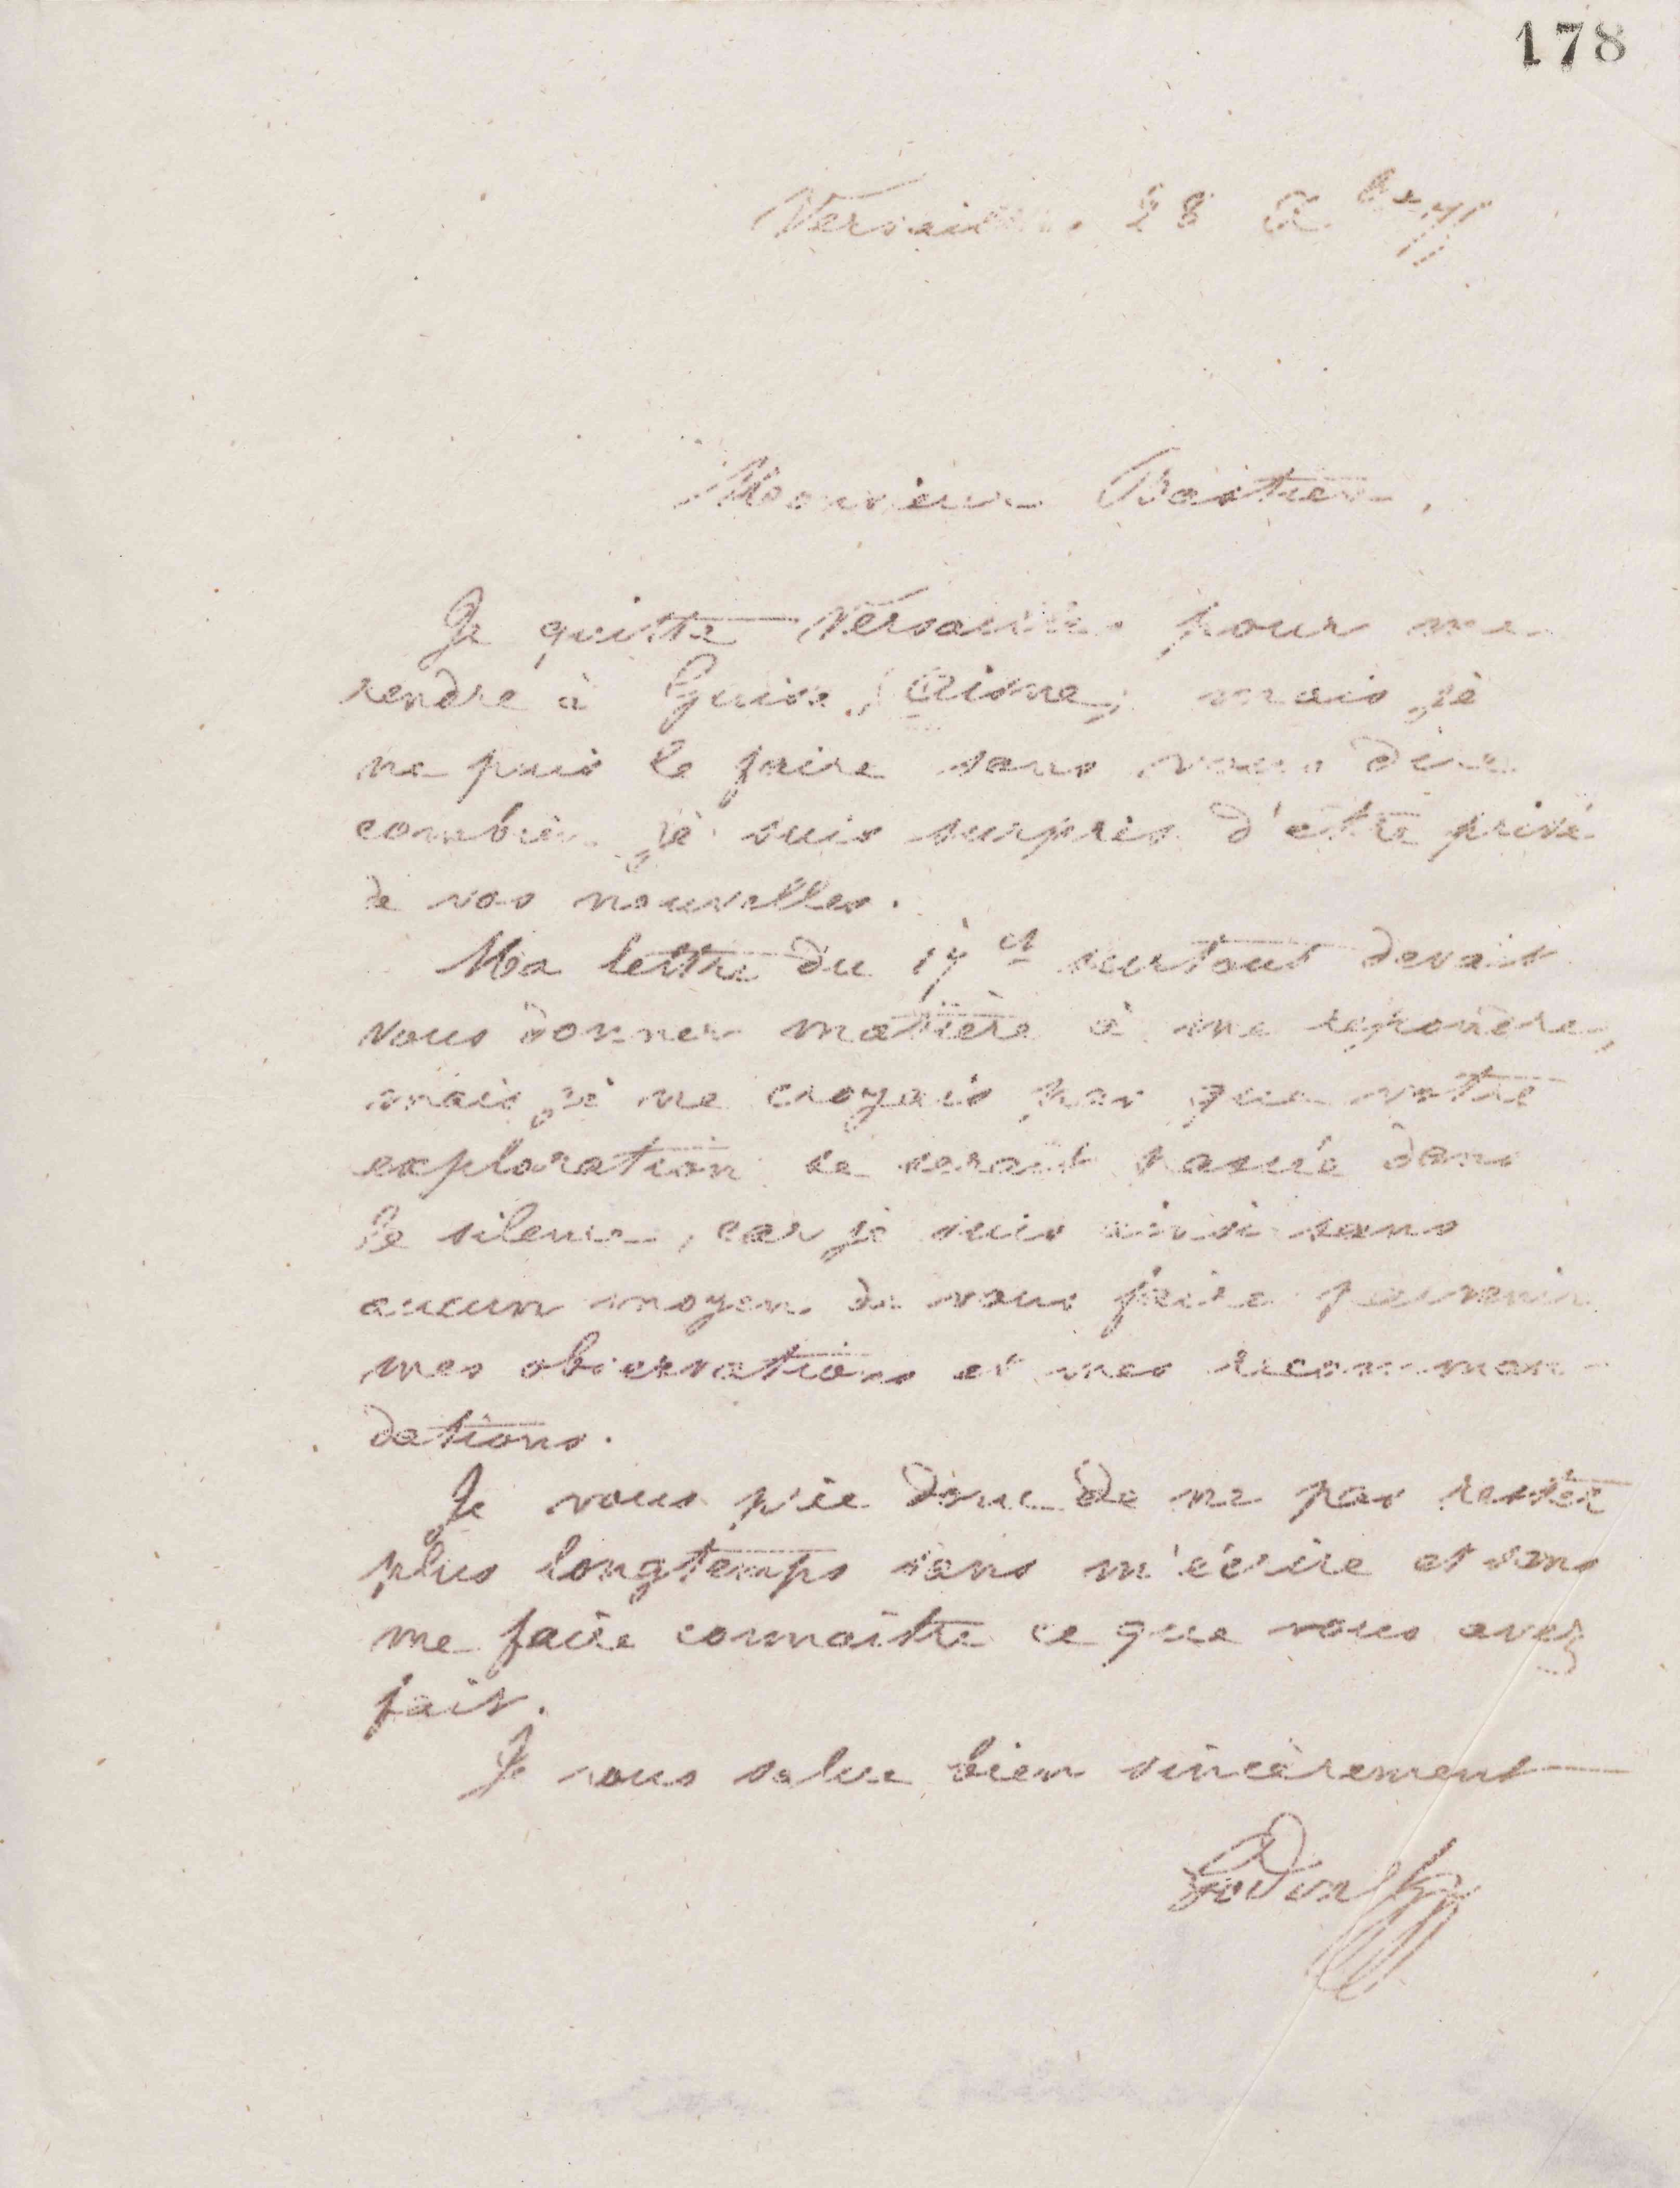 178
Versailles 28 Xbre 71
Monsieur Bastier,
Je quitte Versailles pour me
rendre à Guise, (Aisne) mais je
ne puis le faire sans vous dire
combien je suis surpris d'être privé
de vos nouvelles.
Ma lettre du 17 ct surtout devait
vous donner matière à me répondre,
mais je ne croyais pas que votre
exploration se serait passée dans
le silence, car je suis ainsi sans
aucun moyen de vous faire parvenir
mes observations et mes recomman-
dations.
Je vous prie donc de ne pas rester
plus longtemps sans m'écrire et sans
me faire connaître ce que vous avez
fait.
Je vous salue bien sincèrement
Godin